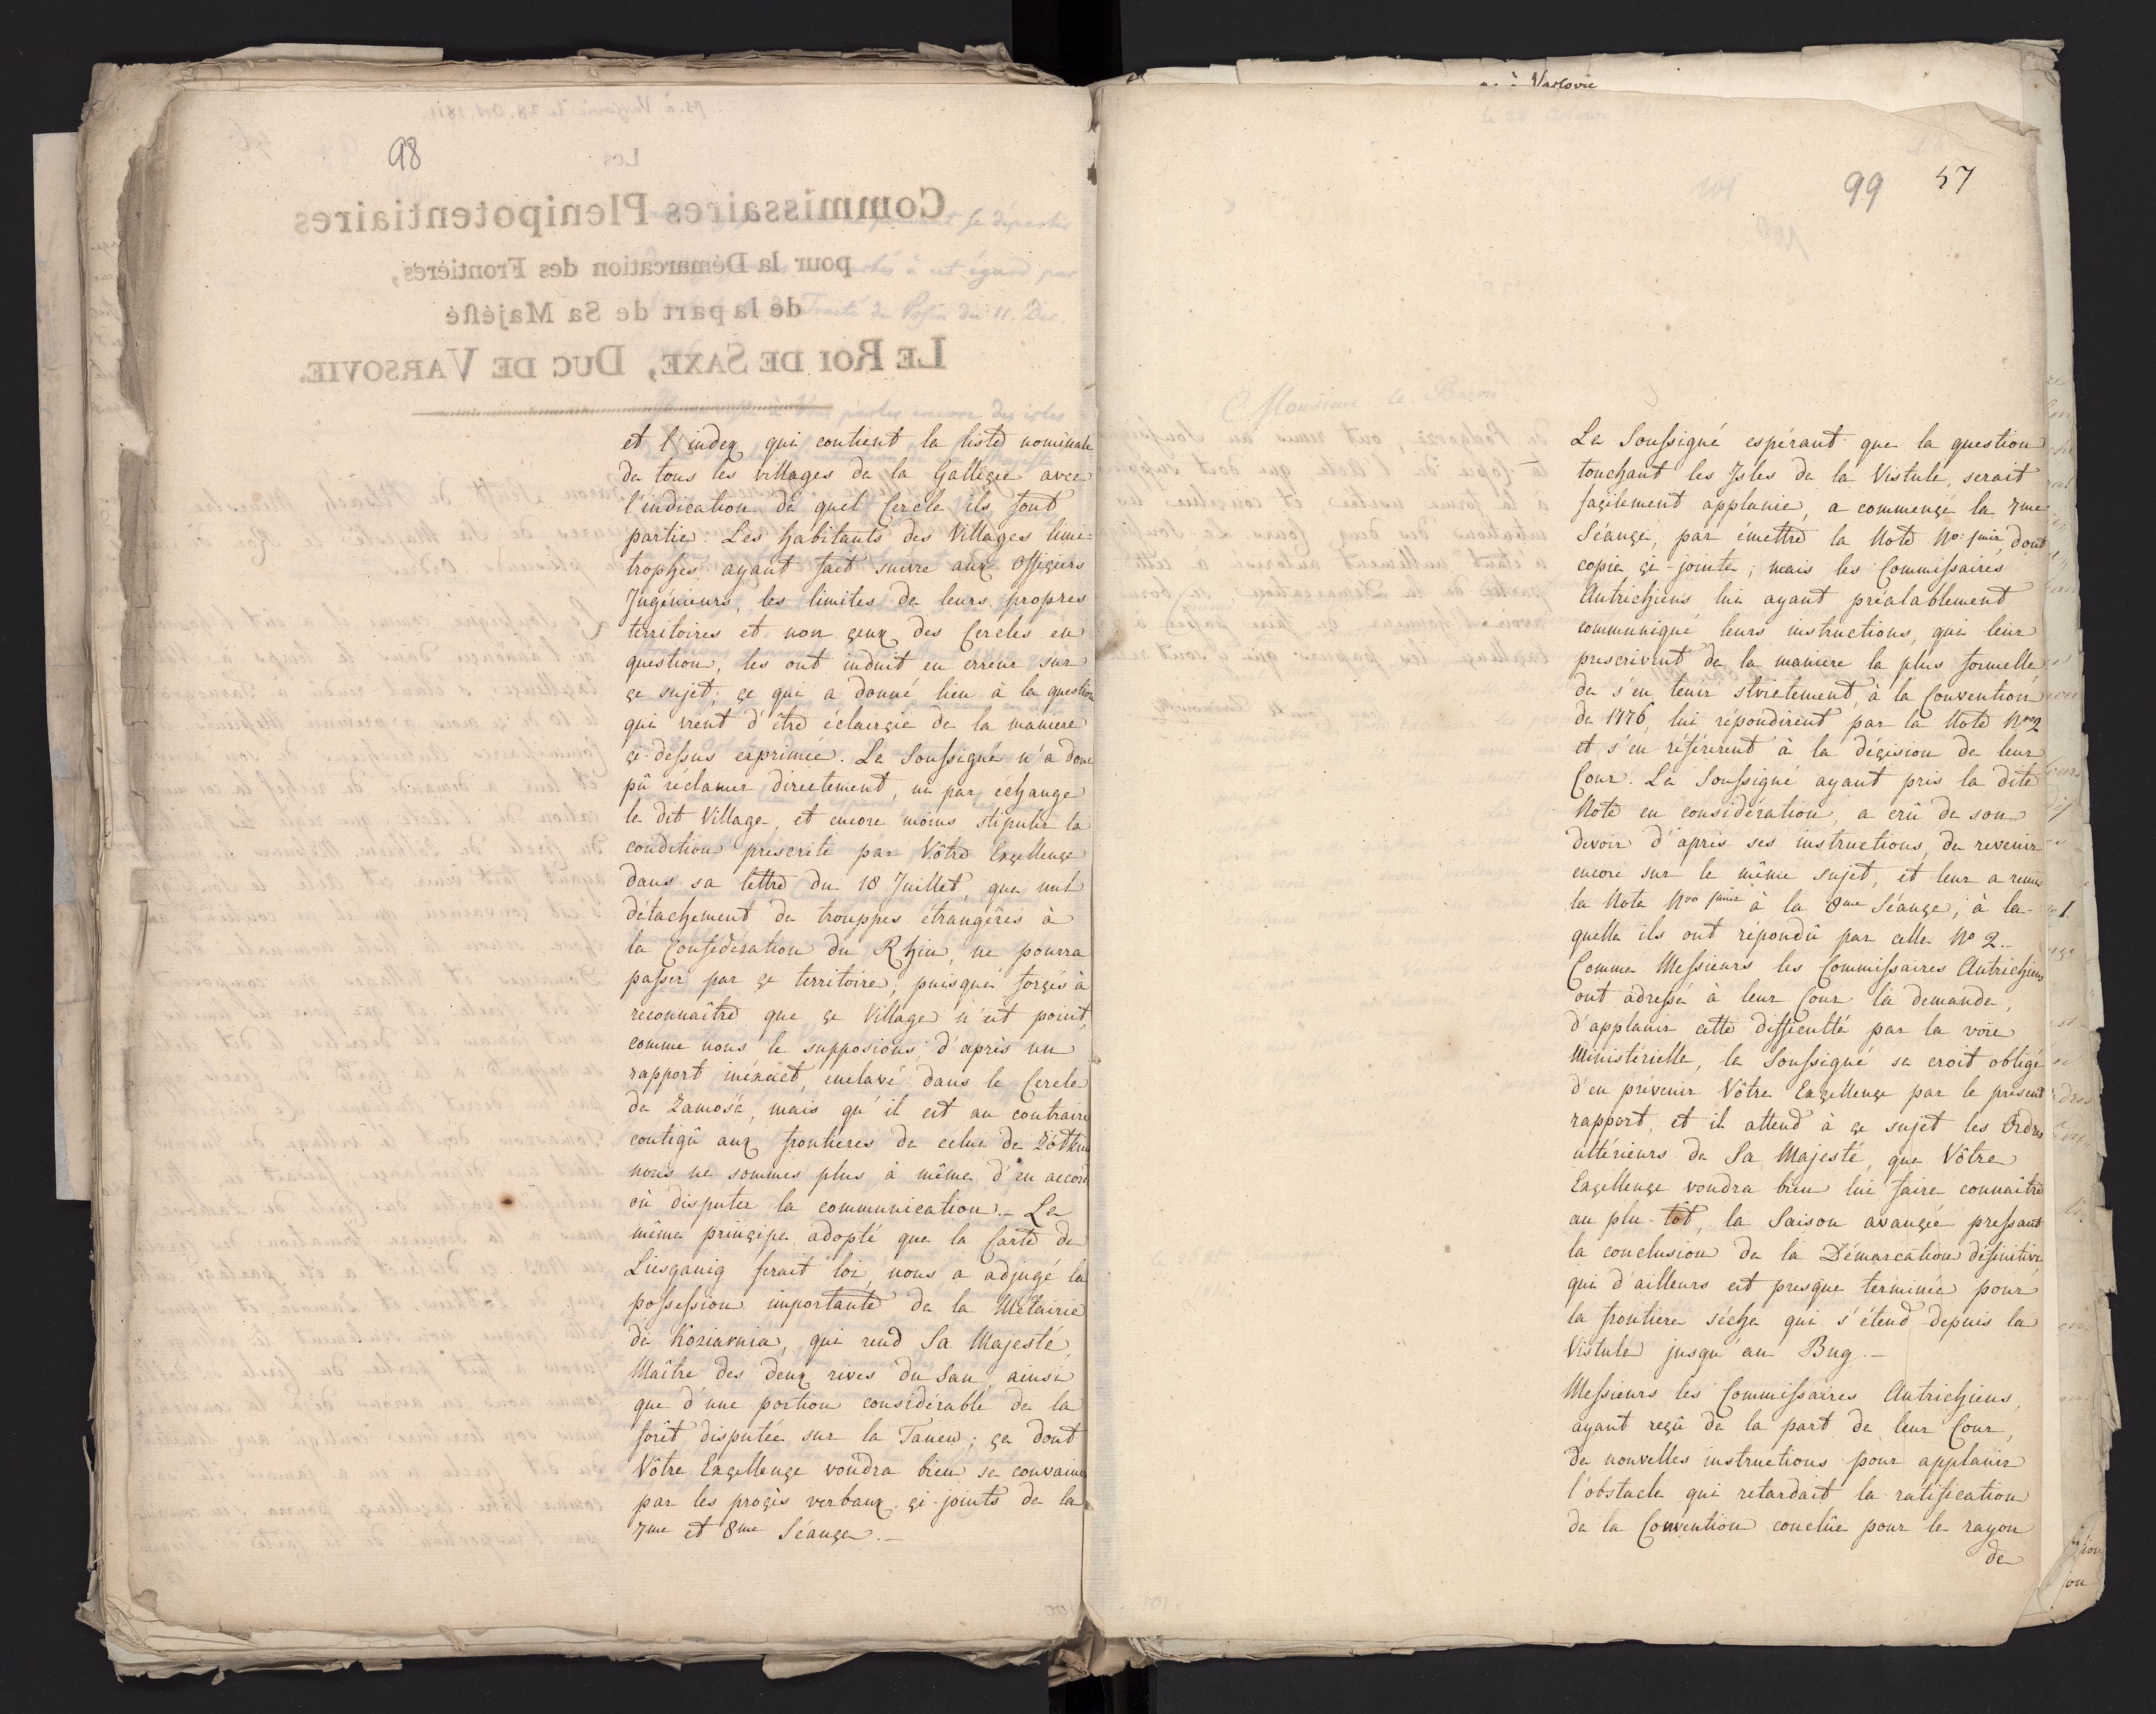 98
et l'index qui contient la liste nominale
de tous les villages de la Gallicie avec
l'indication de quel Cercle ils font
partie. Les habitants des Villages limi-
trophes ayant fait suivre aux Officiers
Ingénieurs, les limites de leurs propres
territoires et non ceux des Cercles en
question, les ont induit en erreur sur
ce sujet; ce qui a donné lieu à la question
qui vient d'être éclaircie de la maniere
ci-dessus exprimée. Le Soussigné n'a donc
pû réclamer directement, ni par échange
le dit Village, et encore moins stipuler la
condition prescrite par Vôtre Excellence
dans sa lettre du 18 Juillet, que nul
détachement de trouppes étrangères à
la Confédération du Rhin, ne pourra
passer par ce territoire; puisque forcés à
reconnaître que ce Village n'est point,
comme nous le supposions d'après un
rapport inéxact, enclavé dans le Cercle
de Zamość, mais qu'il est au contraire
contigû aux frontieres de celui de Zołkiew
nous ne sommes plus à même d'en accord
où disputer la communication. – Le
même principe adopté que la Carte de
Liesganig ferait loi, nous a adjugé la
possession importante de la Métairie
de Koziarnia, qui rend Sa Majesté,
Maître des deux rives du San, ainsi
que d'une portion considérable de la
forêt disputée sur la Tanew; ce dont
Vôtre Excellence voudra bien se convaincre
par les procès verbaux ci-joints de la
7me et 8me Séance. –
à Varsovie
99 57
Le Soussigné espérant que la question
touchant les Isles de la Vistule, serait
facilement applanie, a commencé la 7me
Séance, par émettre la Note No. 1mier, dont
copie ci-jointe; mais les Commissaires
Autrichiens lui ayant préalablement
communiqué leurs instructions, qui leur
prescrivent de la maniere la plus formelle
de s'en tenir strictement à la Convention
de 1776, lui répondirent par la Note Nro 2
et s'en référèrent à la décision de leur
Cour. Le Soussigné ayant pris la dite
Note en considération, a crû de son
devoir d'après ses instructions, de revenir
encore sur le même sujet, et leur a remis
la Note Nro 1mier à la 8me Séance; à la-
quelle ils ont répondû par celle No 2. –
Comme Messieurs les Commissaires Autrichiens
ont adressé à leur Cour la demande,
d'applanir cette difficulté par la voie
Ministérielle, le Soussigné se croit obligé
d'en prévenir Vôtre Excellence par le présent
rapport, et il attend à ce sujet les Ordres
ultérieurs de Sa Majesté, que Vôtre
Excellence voudra bien lui faire connaître
au plu-tôt, la Saison avancée pressant
la conclusion de la Démarcation définitive
qui d'ailleurs est presque terminée pour
la frontiere séche qui s'étend depuis la
Vistule jusqu'au Bug. –
Messieurs les Commissaires Autrichiens,
ayant reçû de la part de leur Cour,
de nouvelles instructions pour applanir
l'obstacle qui retardait la ratification
de la Convention conclûe pour le rayon
de